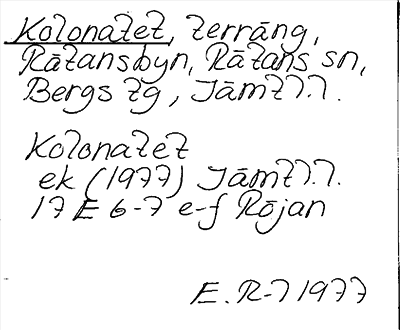 Kolonatet, terräng,
Rätansbyn, Rätans sn,
Bergs tg, Jämtl.l.
Kolonatet
ek (1977) Jämtl.l.
17 E 6-7 e-f Röjan
E.R-l 1977